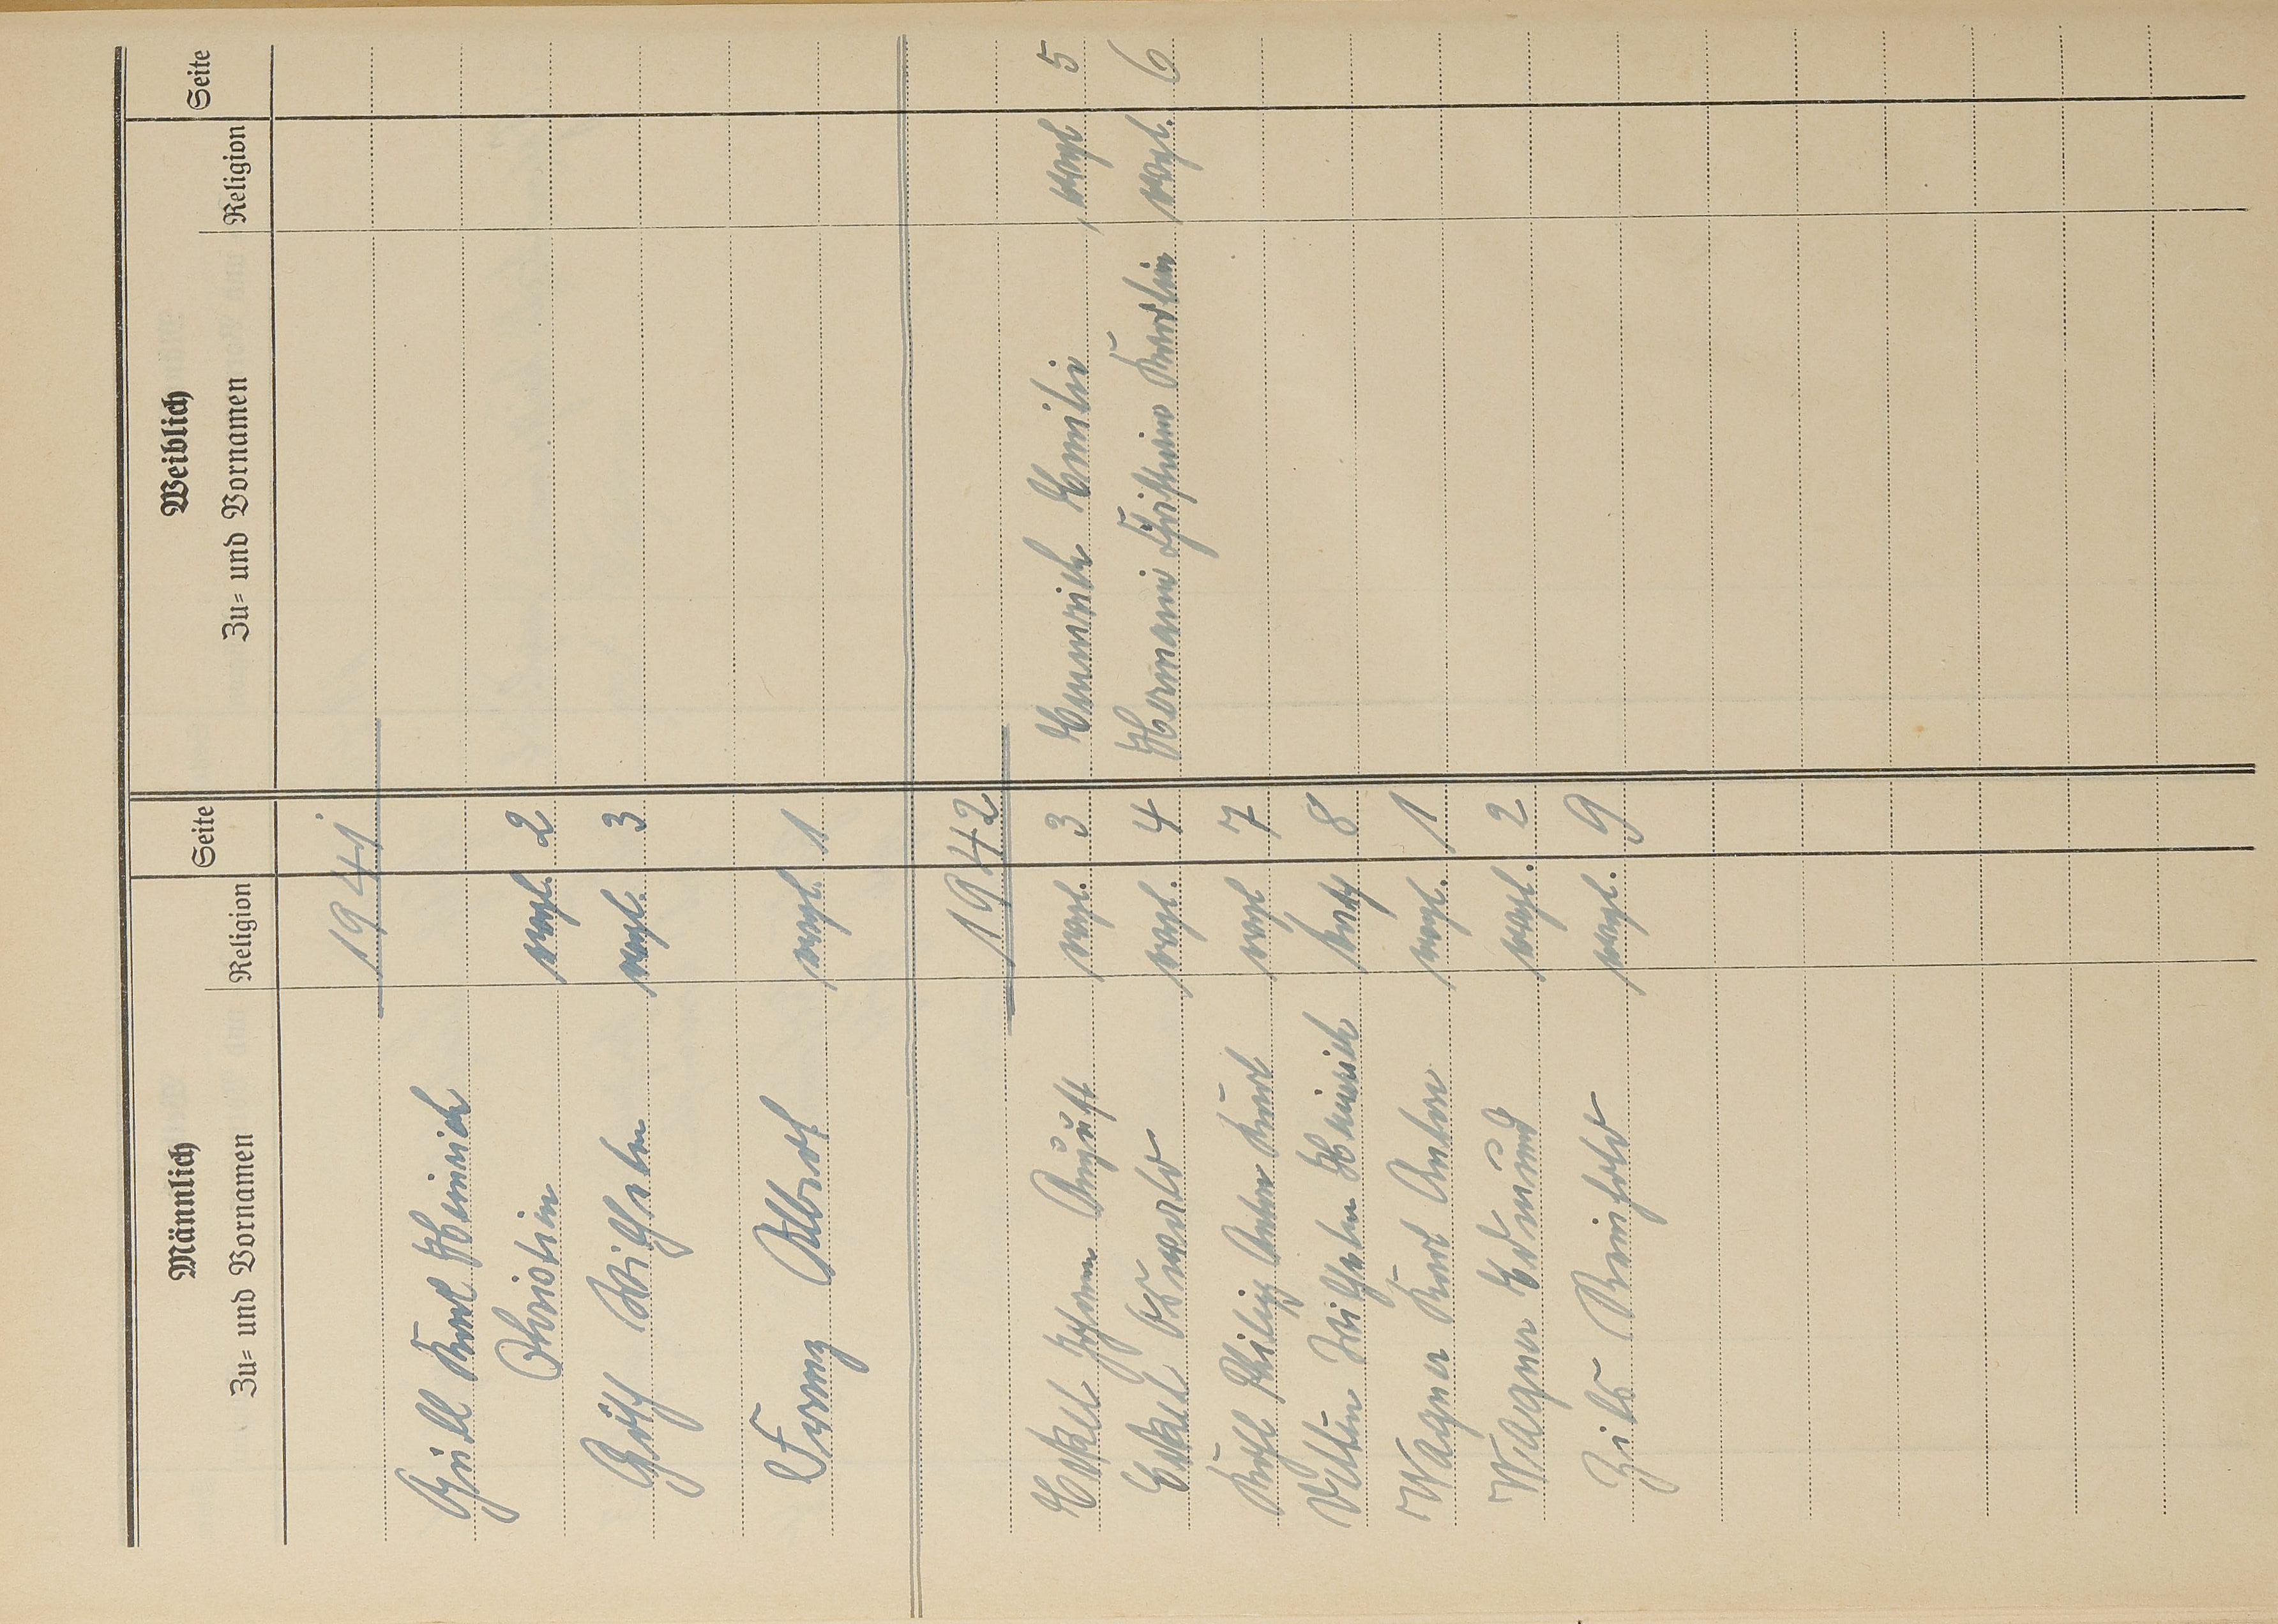 Männlich Weiblich
Zu- und Vornamen Religion Seite Zu- und Vornamen Religion Seite
1941
Güll Karl Heinrich
Christian evgl. 2
Göth Wilhelm evgl. 3
Franz Albert evgl. 1
1942
Eckel Johann August evgl. 3 Emmerich Emilie evgl 5
Eckel Oswald evgl. 4 Hermann Karolin evgl. 6
Philipp Anton Karl evgl 7
Velten Wilhelm Heinrich kath 8
Wagner Karl Anton evgl. 1
Wagner Edmund evgl. 2
Reinhold evgl. 9